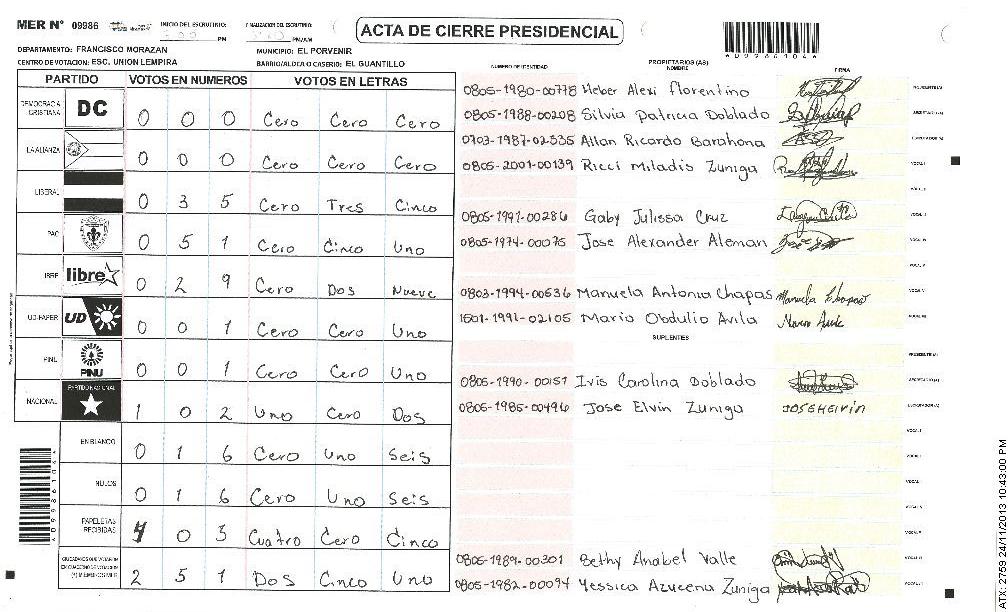 MER N° 09986 INICIO DEL ESCRUTINIO: PM FINALIZACION DEL ESCRUTINIO: PM/AM
ACTA DE CIERRE PRESIDENCIAL
DEPARTAMENTO: FRANCISCO MORAZAN MUNICIPIO: EL PORVENIR
CENTRO DE VOTACION: ESC. UNION LEMPIRA BARRIO/ALDEA O CASERIO: EL GUANTILLO
PARTIDO VOTOS EN NUMEROS VOTOS EN LETRAS
DEMOCRACIA CRISTIANA DC 0 0 0 Cero Cero Cero
LA ALIANZA 0 0 0 Cero Cero Cero
LIBERAL 0 3 5 Cero Tres Cinco
PAC 0 5 1 Cero Cinco Uno
LIBRE libre 0 2 9 Cero Dos Nueve
UD-FAPER UD 0 0 1 Cero Cero Uno
PINU PINU 0 0 1 Cero Cero Uno
NACIONAL PARTIDO NACIONAL 1 0 2 Uno Cero Dos
EN BLANCO 0 1 6 Cero Uno Seis
NULOS 0 1 6 Cero Uno Seis
PAPELETAS RECIBIDAS 4 0 3 Cuatro Cero Cinco
CIUDADANOS QUE VOTARON EN CUADERNO DE VOTACION (+) MIEMBROS MER 2 5 1 Dos Cinco Uno
A09986104
NUMERO DE IDENTIDAD PROPIETARIOS (AS) NOMBRE FIRMA
0805-1980-00778 Heber Alexi florentino PRESIDENTE (A)
0805-1988-00208 Silvia Patricia Doblado SECRETARIO (A)
0703-1987-02535 Allan Ricardo Barahona ESCRUTADOR (A)
0805-2001-00139 Ricci Miladis Zuniga VOCAL I
0805-1991-00286 Gaby Julissa Cruz
0805-1974-00075 Jose Alexander Aleman
0803-1994-00536 Manuela Antonia Chapas Manuela Chapas
1501-1991-02105 Mario Obdulio Avila
SUPLENTES
PRESIDENTE (A)
0805-1990-00151 Ivis Carolina Doblado SECRETARIO (A)
0805-1985-00496 Jose Elvin Zuniga JOSEHElvin ESCRUTADOR (A)
0805-1989-00301 Bethy Anabel Valle
0805-1982-00094 Yessica Azucena Zuniga
A09986104
ATX-2759 24/11/2013 10:43:00 PM